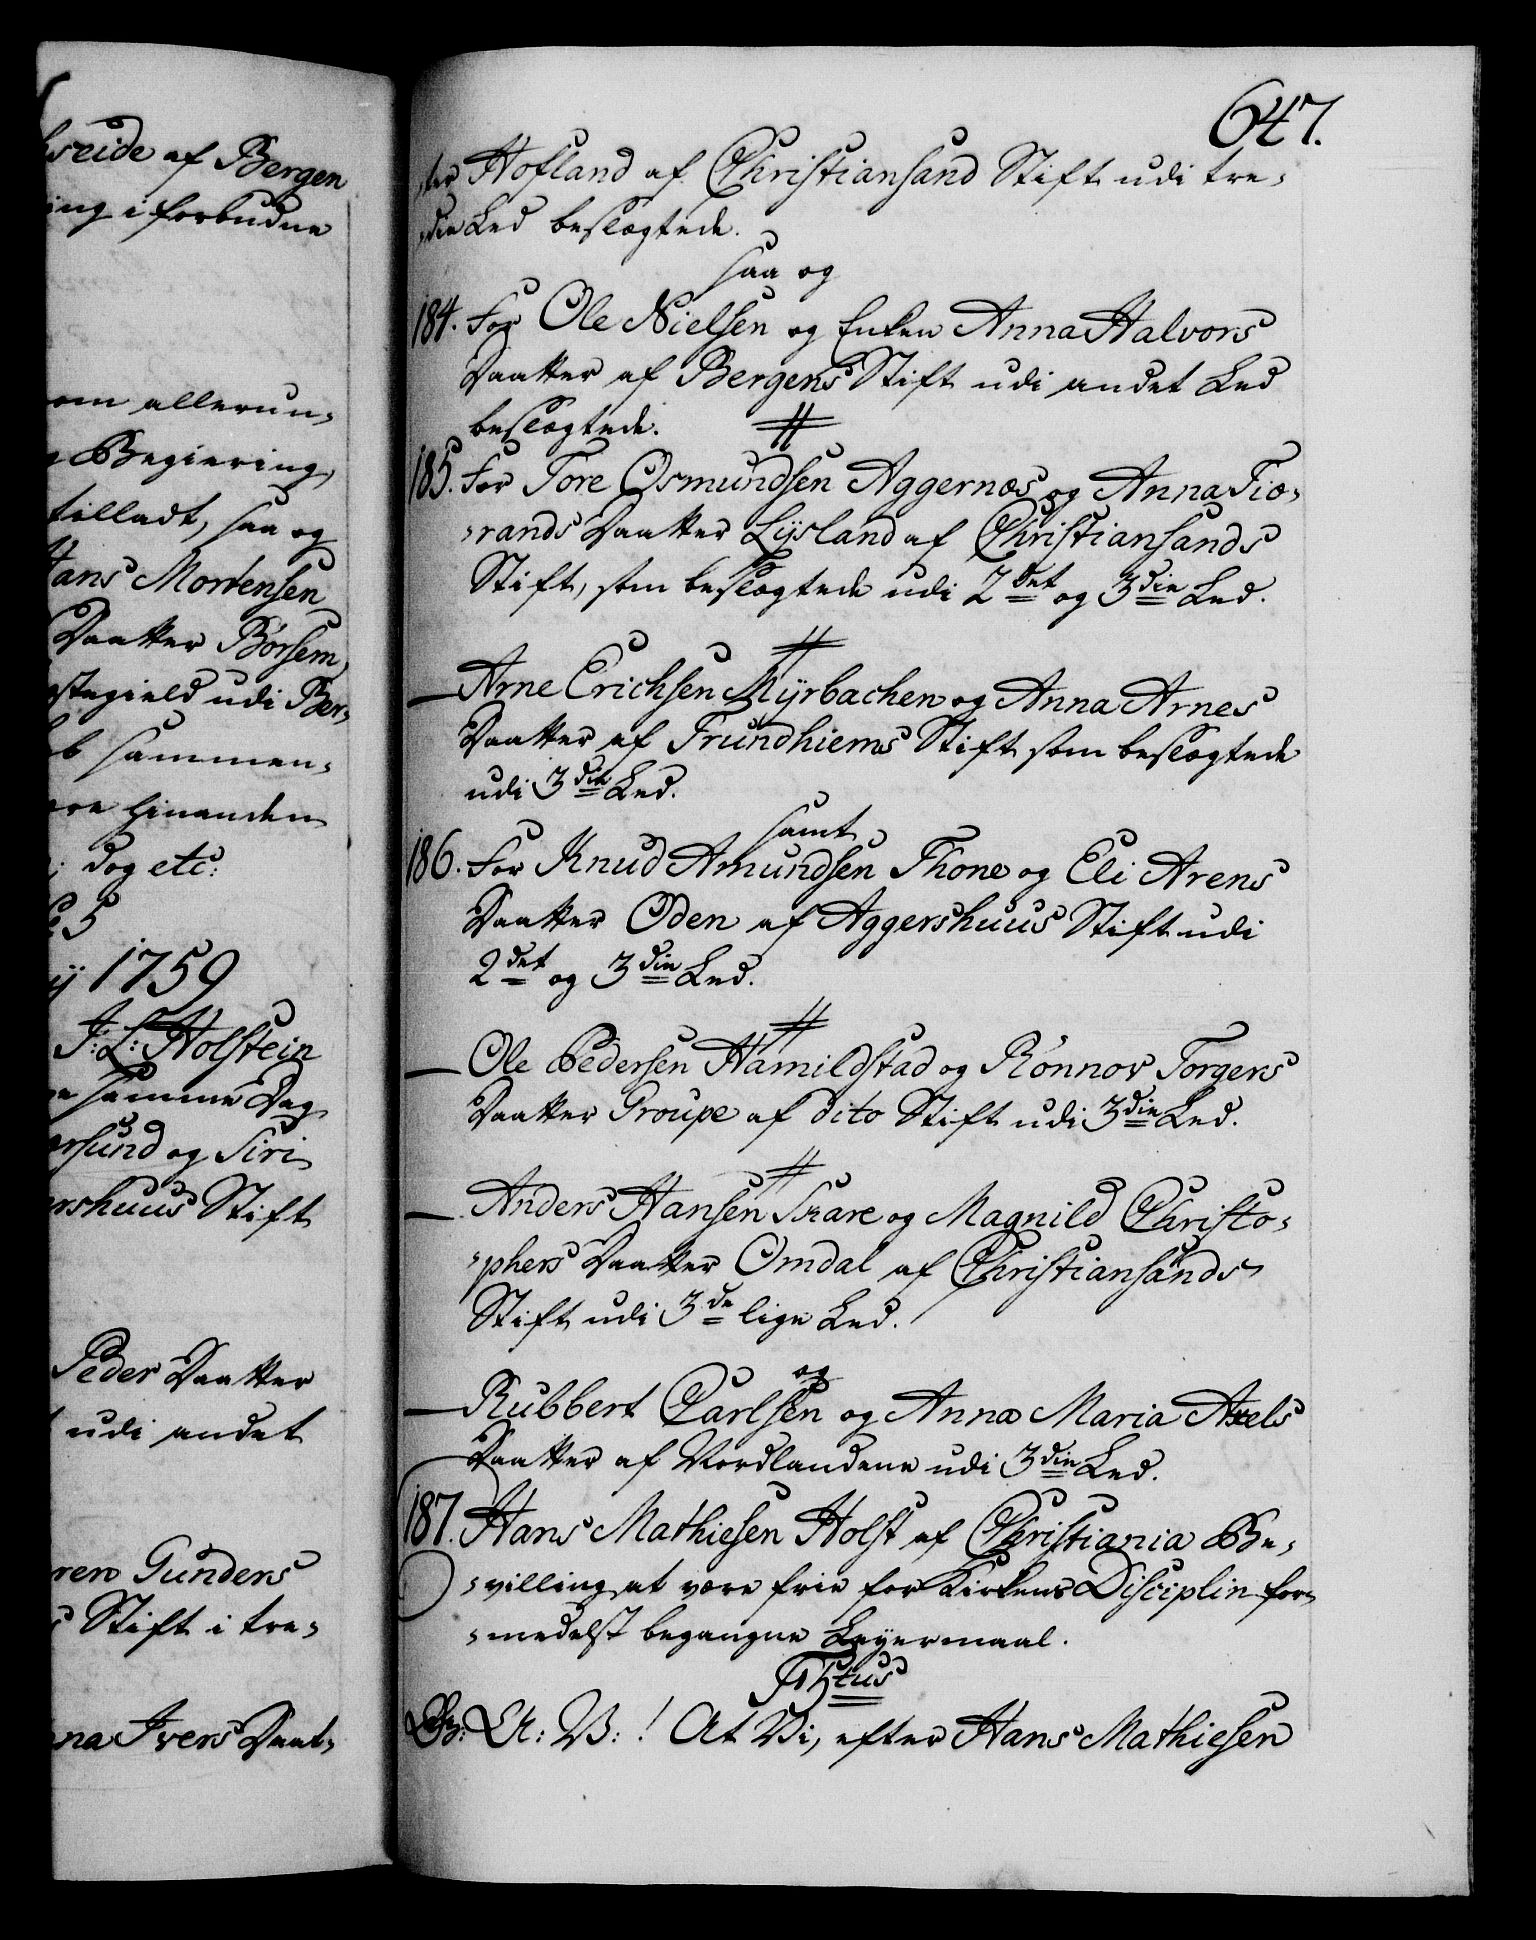 hreide af Bergen
ing i forbudne
om allerun-
Begiering,
tilladt, saa og
Hans Mortensen
Daatter Börsem,
stegield udi Ber-
sammen-
ere hinanden
dog etc:
5
1759
J: L: Holstein
samme Dag
ersund og Siri
ershuus Stift
Peder Daatter
udi andet
ren Gunders
Stift i tre-
na Ivers Daat-
647.
-ter Hofland af Christiansand Stift udi tre-
-die Led beslægtede.
saa og
184. For Ole Nielsen og Enken Anna Halvors
Daatter af Bergens Stift udi andet Led
beslægtede. #
185. For Tore Osmundsen Aggernæs og Anna Tio-
-rands Daatter Lijsland af Christiansands
Stift, som beslægtede udi 2det og 3die Led.
#
— Arne Erichsen Mÿrbachen og Anna Arnes
Daatter af Trundhiems Stift som beslægtede
udi 3die Led.
samt
186. For Knud Amundsen Thone og Eli Arens
Daatter Oden af Aggershuus Stift udi
2det og 3die Led.
#
— Ole Pedersen Hamildstad og Rönnov Torgers
Daatter Proupe af dito Stift udi 3die Led.
#
— Anders Hansen Skare og Magnild Christo-
-phers Daatter Omdal af Christiansands
Stift udi 3de lige Led.
og
— Rubbert Carlsen og Anna Maria Axels
Daatter af Nordlandene udi 3die Led.
187. Hans Mathiesen Holst af Christiania Be-
-villing at være frie for Kirkens Disciplin for-
-medelst begangne Leyermaal.
F5tus
G: A: V: ! At Vi, efter Hans Mathiesen